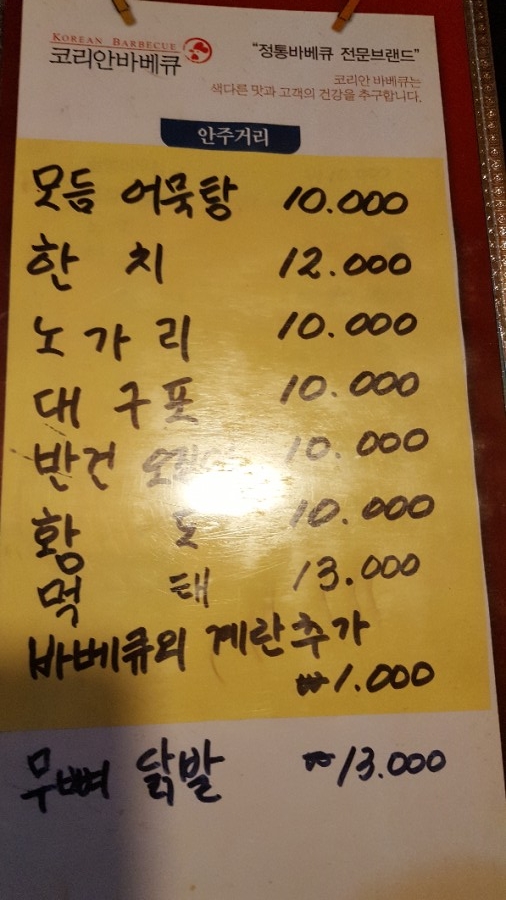 KOREAN BARBECUE
코리안바베큐
"정통바베큐 전문브랜드"
코리안 바베큐는
색다른 맛과 고객의 건강을 추구합니다.
안주거리
모듬 어묵탕 10.000
한 치 12.000
노가리 10.000
대구포 10.000
반건 10.000
황 도 10.000
먹 태 13.000
바베큐외 계란추가
₩1.000
무뼈 닭발 ₩13.000